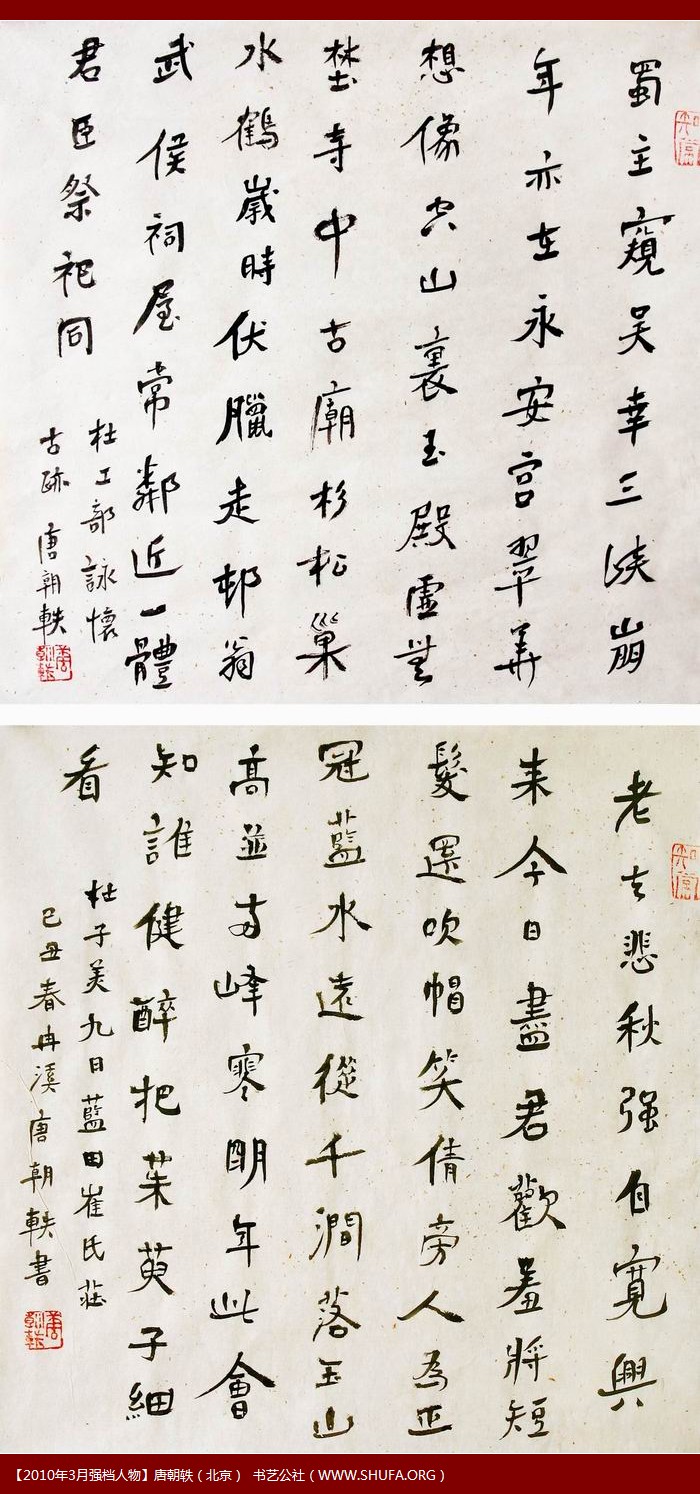 蜀主窺吴幸三峽崩
年亦在永安宫翠華
想像空山裏玉殿虛無
埜寺中古廟杉松巢
水鶴歲時伏臘走邨翁
武侯祠屋常鄰近一體
君臣祭祀同
杜工部詠懷
古跡 唐朝軼
老去悲秋强自寬興
来今日盡君歡羞將短
髮還吹帽笑倩旁人為正
冠藍水遠從千澗落玉山
高並兩峰寒明年此會
知誰健醉把茱萸子細
看
杜子美九日藍田崔氏莊
己丑春冉溪唐朝軼書
【2010年3月强档人物】唐朝轶（北京） 书艺公社（WWW.SHUFA.ORG）